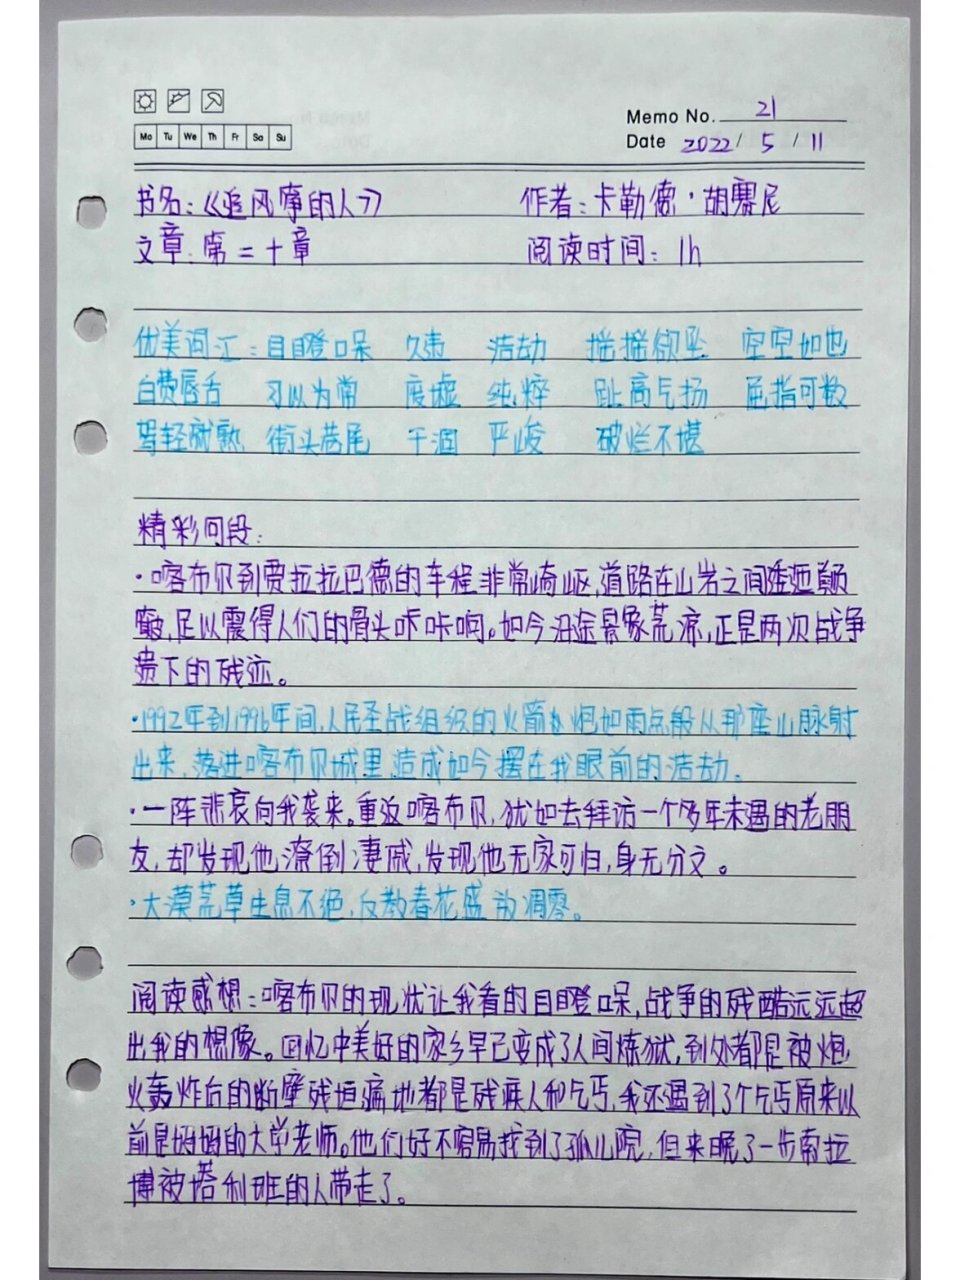 Memo No. 21
Mo Tu We Th Fr Sa Su
Date 2022 / 5 / 11
书名:《追风筝的人》 作者:卡勒德·胡赛尼
文章:第二十章 阅读时间:1h
优美词汇:目瞪口呆 久违 浩劫 摇摇欲坠 空空如也
白费唇舌 习以为常 废墟 纯粹 趾高气扬 屈指可数
驾轻就熟 街头巷尾 干涸 严峻 破烂不堪
精彩回段:
·喀布尔到贾拉拉巴德的车程非常崎岖,道路在山岩之间逶迤颠
簸,足以震得人们的骨头咔咔响。如今沿途景象荒凉,正是两次战争
遗下的残迹。
·1992年到1996年间,人民圣战组织的火箭炮如雨点般从那座山脉射
出来,落进喀布尔城里,造成如今摆在我眼前的浩劫。
·一阵悲哀向我袭来。重返喀布尔,犹如去拜访一个多年未遇的老朋
友,却发现他潦倒凄戚,发现他无家可归,身无分文。
·大漠荒草生息不绝,反教春花盛放凋零。
阅读感想:喀布尔的现状让我看的目瞪口呆,战争的残酷远远超
出我的想像。回忆中美好的家乡早已变成了人间炼狱,到处都是被炮
火轰炸后的断壁残垣,遍地都是残疾人和乞丐,我还遇到了个乞丐原来以
前是妈妈的大学老师。他们好不容易找到了孤儿院,但来晚了一步索拉
博被塔利班的人带走了。